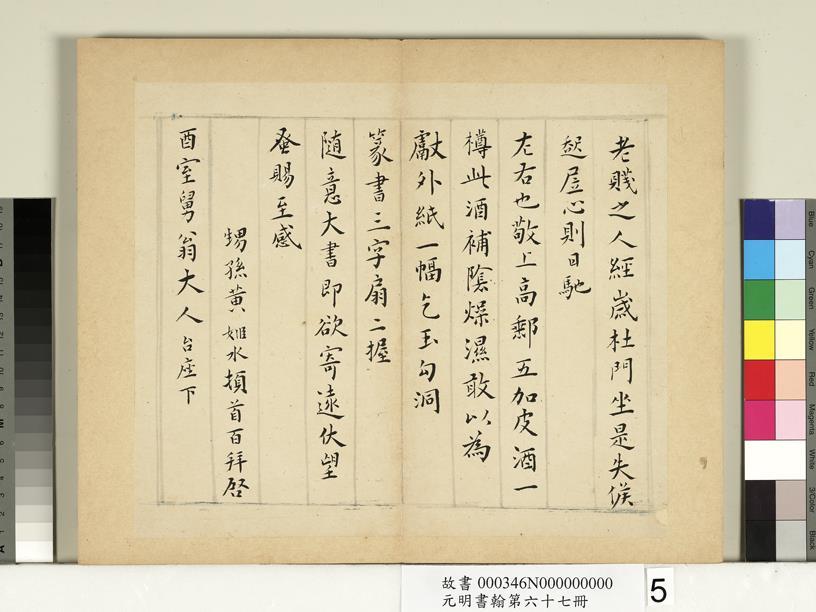 老賤之人經歲杜門坐是失候
起居心則日馳
左右也敬上高郵五加皮酒一
樽此酒補陰燥濕敢以為
獻外紙一幅乞玉勾洞
篆書三字扇二握
隨意大書即欲寄遠伏望
蚤賜至感
甥孫黃姬水頓首百拜啓
酉室舅翁大人台座下
故書 000346N000000000
元明書翰第六十七冊
5
Blue
Cyan
Green
Yellow
Red
Magenta
White
3/Color
Black